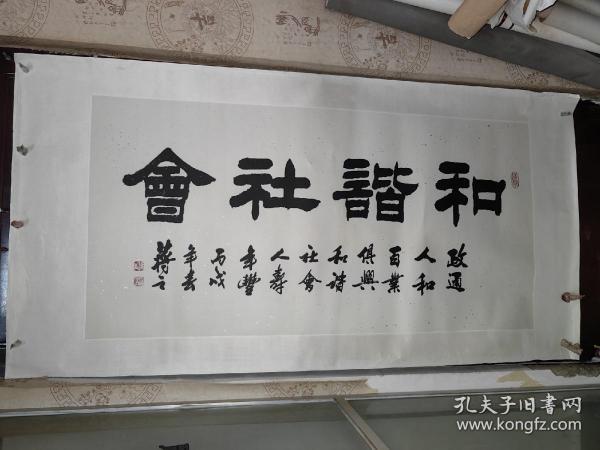 和諧社會
政通
人和
百業
俱興
和諧
社會
人壽
年豐
丙戌
年春
蔣立
孔夫子旧书网
www.kongfz.com